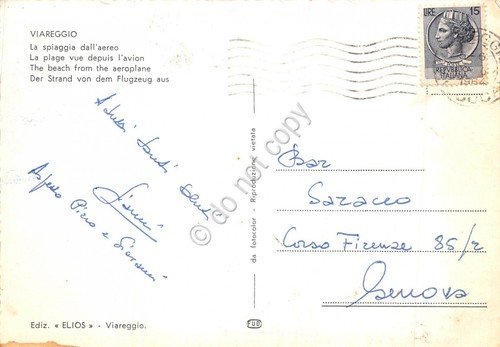 VIAREGGIO
La spiaggia dall'aereo
La plage vue depuis l'avion
The beach from the aeroplane
Der Strand von dem Flugzeug aus
LIRE 15
REPUBBLICA
ITALIANA
Saluti
Gianni
Piero e Giovanni
do not copy
da fotocolor - Riproduzione vietata
Bar
Saracco
Corso Firenze 85/r
Genova
Ediz. « ELIOS » - Viareggio.